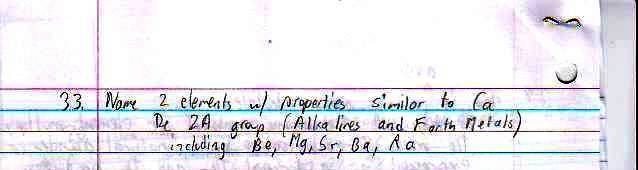 33. Name 2 elements w/ properties similar to Ca
De 2A group (Alkalines and Earth Metals)
including Be, Mg, Sr, Ba, Ra